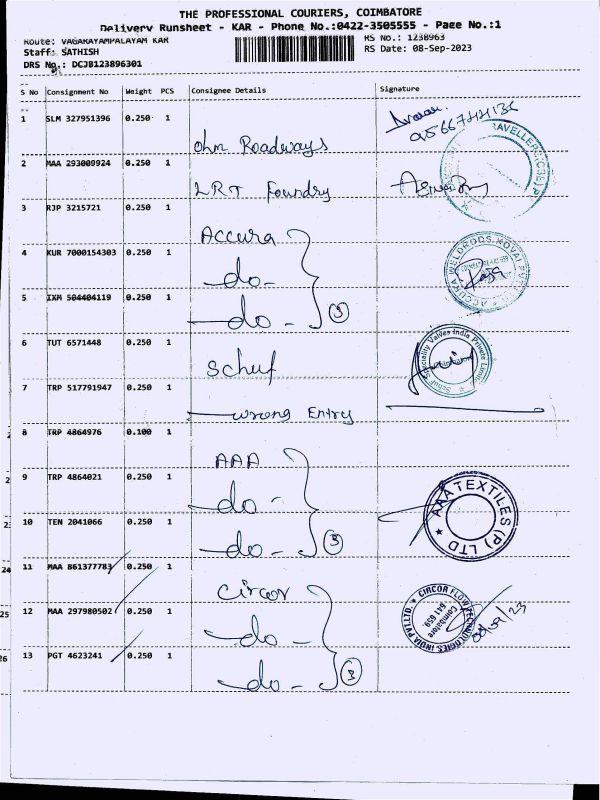 THE PROFESSIONAL COURIERS, COIMBATORE
Delivery Runsheet - KAR - Phone No.:0422-3505555 - Page No.:1
Route: VAGARAYAMPALAYAM KAR
RS No.: 1238963
Staff: SATHISH
RS Date: 08-Sep-2023
DRS No.: DCJB123896301
S No Consignment No Weight PCS Consignee Details Signature
1 SLM 327951396 0.250 1 Ohm Roadways
2 MAA 293009924 0.250 1 LRT Foundry
3 RJP 3215721 0.250 1 Accura
4 KUR 7000154303 0.250 1 -do-
5 IXM 504404119 0.250 1 -do- 3
6 TUT 6571448 0.250 1 Schuf
Schuf Speciality Valves India Private Limited
7 TRP 517791947 0.250 1 wrong Entry
8 TRP 4864976 0.100 1 AAA
9 TRP 4864021 0.250 1 -do-
AAA TEXTILES (P) LTD
10 TEN 2041066 0.250 1 -do- 3
24 11 MAA 861377783 0.250 1 Circor
25 12 MAA 297980502 0.250 1 -do-
CIRCOR FLOW TECHNOLOGIES INDIA PVT.LTD
Coimbatore
641 659.
26 13 PGT 4623241 0.250 1 -do- 3